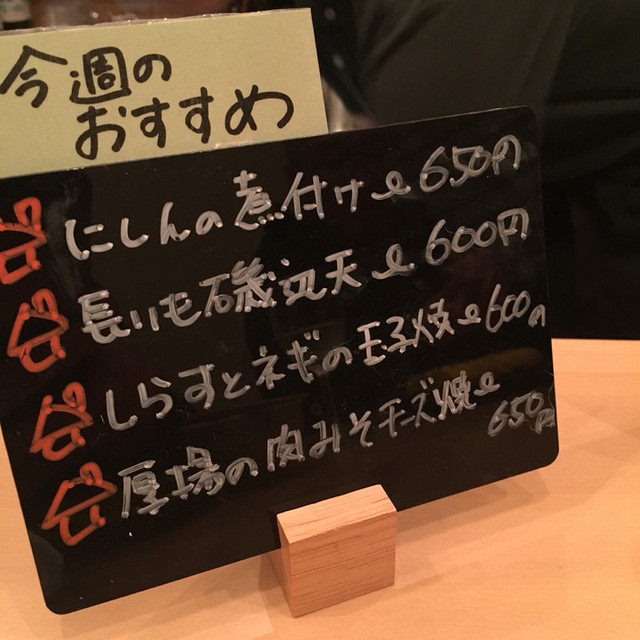 今週の
おすすめ
にしんの煮付け 650円
長いも磯辺天 600円
しらすとネギの玉子焼 600円
厚揚の肉みそチーズ焼
650円